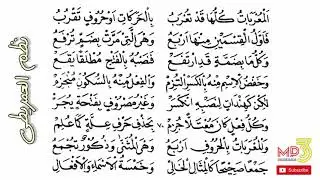 نظم العمريطي
اَلْمُعْرَبَاتُ كُلُّهَا قَدْ تُعْرَبُ بِالْحَرَكَاتِ اَوْ حُرُوْفٍ تَقْرُبُ
فَاَوَّلُ الْقِسْمَيْنِ مِنْهَا اَرْبَعُ وَهْيَ الَّتِيْ مَرَّتْ بِضَمٍّ تُرْفَعُ
وَكُلُّ مَا بِضَمَّةٍ قَدِ ارْتَفَعْ فَنَصْبُهُ بِالْفَتْحِ مُطْلَقًا يَقَعْ
وَخَفْضُ الْاِسْمِ مِنْهُ بِالْكَسْرِ الْتُزِمْ وَالْفِعْلُ مِنْهُ بِالسُّكُوْنِ مُنْجَزِمْ
لٰكِنْ كَهِنْدَاتٍ لِنَصْبِهِ انْكَسَرْ وَغَيْرُ مَصْرُوْفٍ بِفَتْحَةٍ يُجَرْ
وَكُلُّ فِعْلٍ كَانَ مُعْتَلًّا جُزِمْ ٧٠ بِحَذْفِ حَرْفِ عِلَّةٍ كَمَا عُلِمْ
وَالْمُعْرَبَاتُ بِالْحُرُوْفِ اَرْبَعُ وَهْيَ الْمُثَنَّى وَذُكُوْرٌ تُجْمَعُ
جَمْعًا صَحِيْحًا كَالْمِثَالِ الْخَالِيْ وَخَمْسَةُ الْاَسْمَاءِ وَالْاَفْعَالِ
MD3
SUBSCRIBE